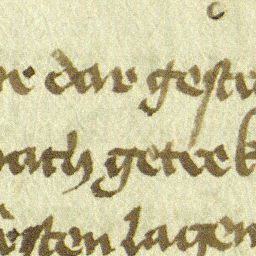 dar gestre
nach getrek
ersten lagen